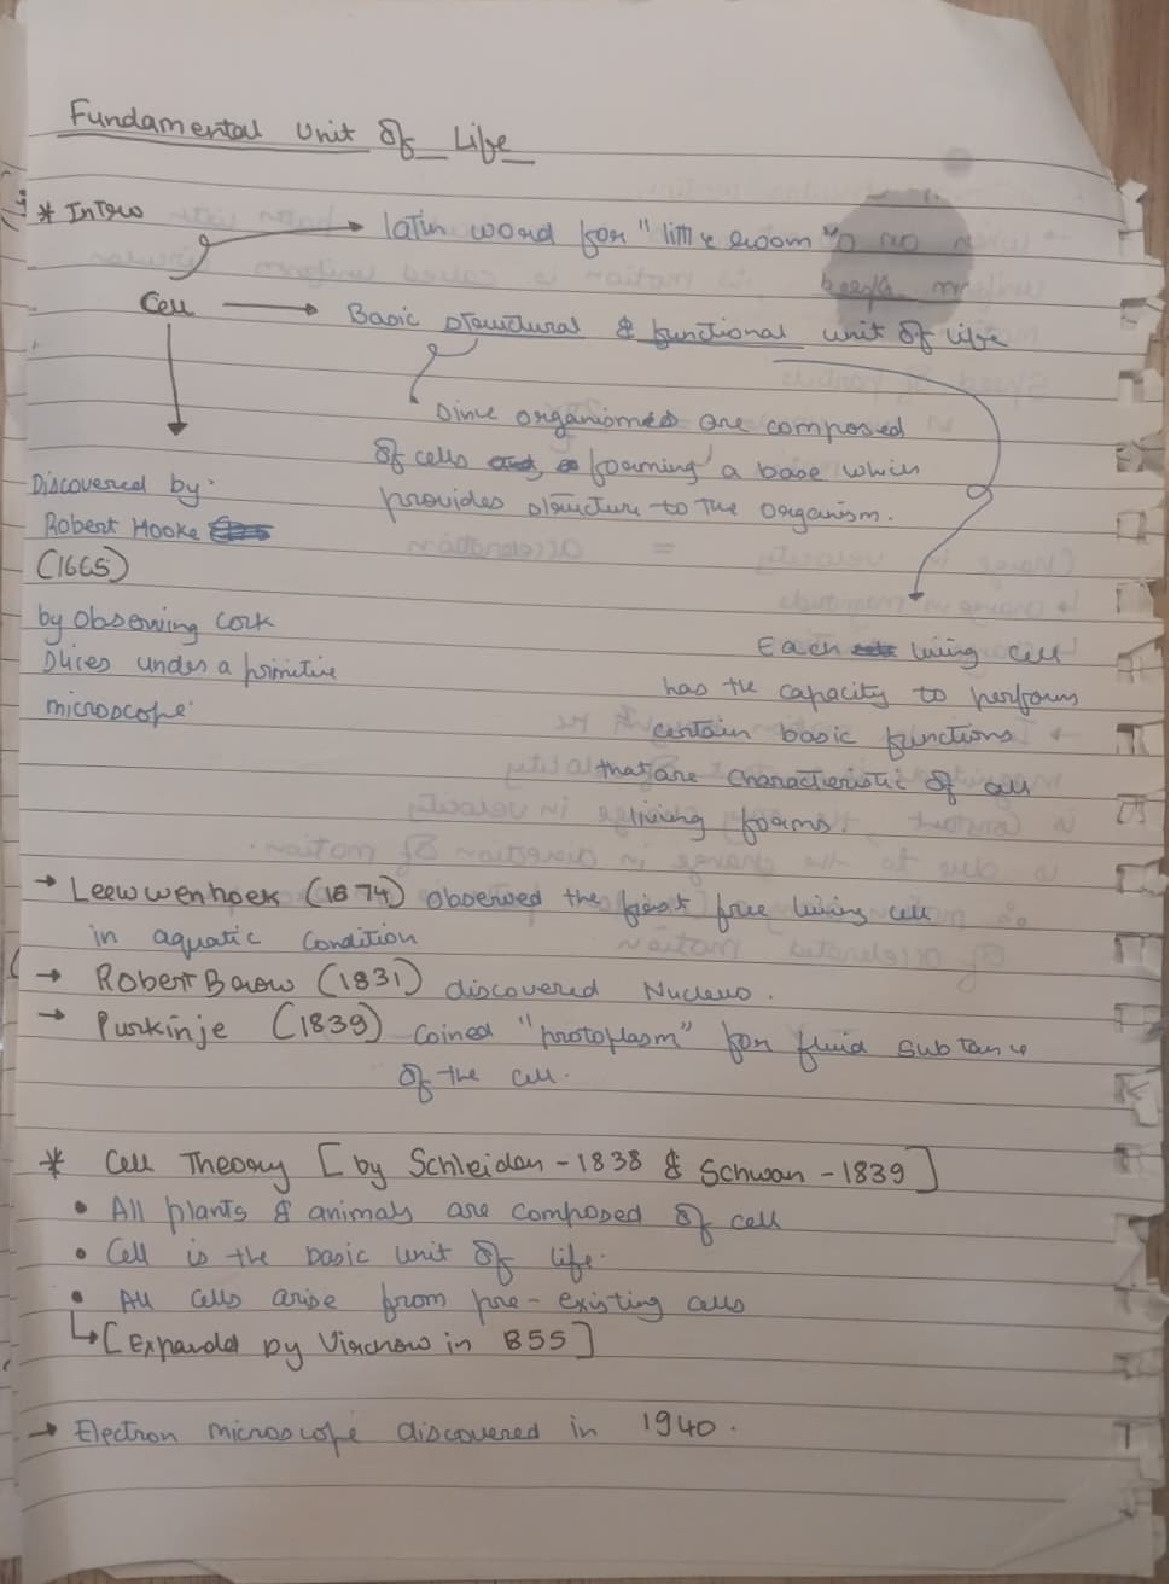 Fundamental Unit Of Life
* Intro
latin word for "little room"
Cell → Basic structural & functional unit of life
Since organisms are composed
of cells forming a base which
provides structure to the organism.
Discovered by:
Robert Hooke
(1665)
by observing cork
slices under a primitive
microscope
Each living cell
has the capacity to perform
certain basic functions
that are characteristic of all
living forms
→ Leewwenhoek (1674) observed the first free living cell
in aquatic condition
→ Robert Brow (1831) discovered Nucleus.
→ Purkinje (1839) coined "protoplasm" for fluid substance
of the cell.
* Cell Theory [by Schleiden - 1838 & Schwan - 1839]
• All plants & animals are composed of cell
• Cell is the basic unit of life.
• All cells arise from pre-existing cells
↳ [Expanded by Virchow in 855]
→ Electron microscope discovered in 1940.